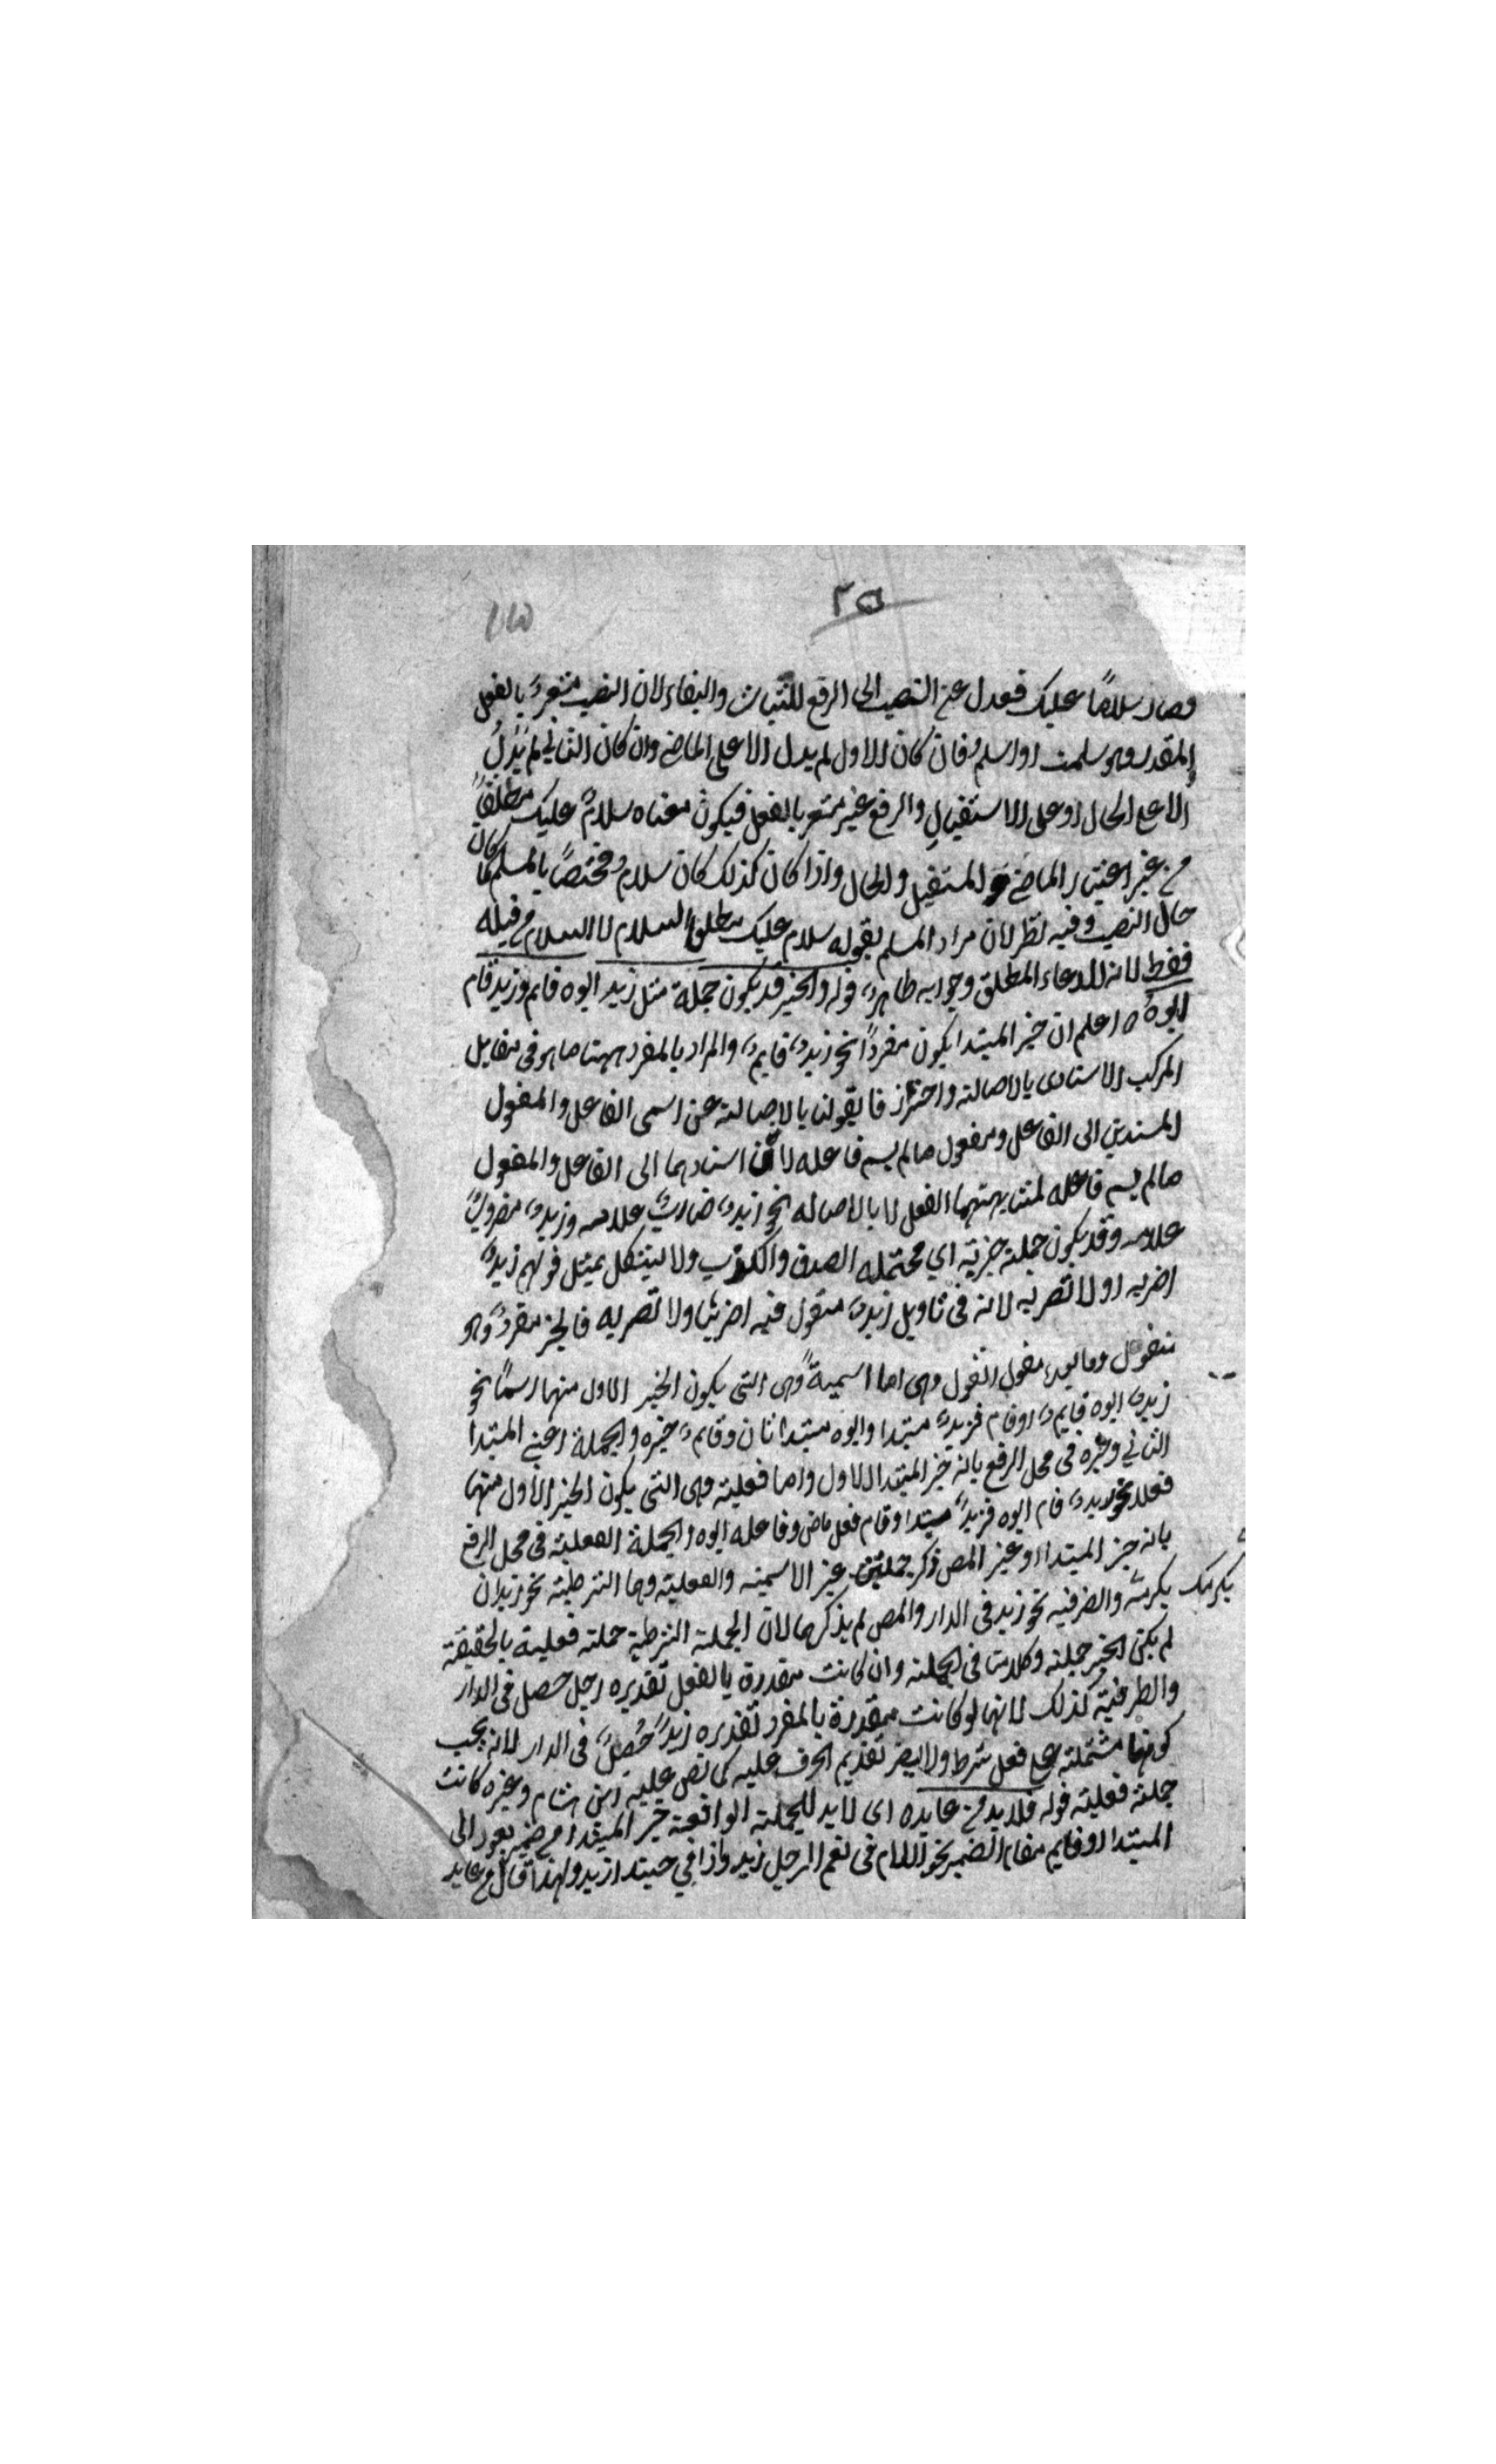 ٢٥
فصار سلامًا عليك فعدل عن النصب الى الرفع للثبات والبقاء لان النصب مشعر بالفعل
المقدر وهو سلمت او اسلم فان كان الاول لم يدل الا على الماضي وان كان الثاني لم يدل
الا على الحال او على الاستقبال والرفع غير مشعر بالفعل فيكون معناه سلام عليك مطلقًا
من غير اعتبار الماضي و المستقبل والحال واذا كان كذلك كان سلام مختصًا بالمسلم كما كان
حال النصب وفيه نظر لان مراد المسلم بقوله سلام عليك مطلق السلام لا السلام من قبله
فقط لانه للدعاء المطلق وجوابه ظاهر قوله والخبر قد يكون جملة مثل زيد ابوه قايم وزيد قام
ابوه اعلم ان خبر المبتدا يكون مفردًا نحو زيد قايم والمراد بالمفرد ههنا ما هو في مقابل
المركب الاسنادى بالاصالة واحتراز فا بقولنا بالاصالة عن اسمى الفاعل والمفعول
المسندين الى الفاعل ومفعول مالم يسم فاعله لان اسنادهما الى الفاعل والمفعول
مالم يسم فاعله لمشابهتهما الفعل لا بالاصاله نحو زيد ضارب غلامه وزيد مضروب
غلامه وقد يكون جملة خبرية اي محتمله الصدق والكذب ولا يشكل بمثل قولهم زيد
اضربه او لا تضربه لانه في تاويل زيد مقول فيه اضربه ولا تضربه فالخبر مفرد وهو
مقول وما بعده مفعول القول وهى اما اسمية وهى التى يكون الجزء الاول منها اسمًا نحو
زيد ابوه قايم او قام فزيد مبتدا وابوه مبتدا ثان وقايم خبره والجملة اعنى المبتدا
الثاني وخبره فى محل الرفع بانه خبر المبتدا الاول واما فعلية وهى التى يكون الجزء الاول منها
فعلا نحو زيد قام ابوه فزيد مبتدا وقام فعل ماض وفاعله ابوه والجملة الفعلية فى محل الرفع
بانه خبر المبتدا او غير المص ذكر جملتين غير الاسمية والفعلية وهما الشرطية نحو زيد ان
يكرمك يكرمه والظرفية نحو زيد فى الدار والمص لم يذكرهما لان الجملة الشرطية جملة فعلية بالحقيقة
لم يكن الخبر جملة وكلامنا فى الجملة وان كانت مقدرة بالفعل تقديره رجل حصل فى الدار
والظرفية كذلك لانها لو كانت مقدرة بالمفرد تقديره زيد حصل فى الدار لانه يجب
كونها مشتملة على فعل شرط ولا يضر تقديم الحرف عليه كما نص عليه ابن هشام وغيره كانت
جملة فعلية قوله فلا بد من عايده اى لا بد للجملة الواقعة خبر المبتدا من ضمير يعود الى
المبتدا او قايم مقام الضمير نحو اللام فى نعم الرجل زيد وذا في حبذا زيد ولهذا قال من عايد